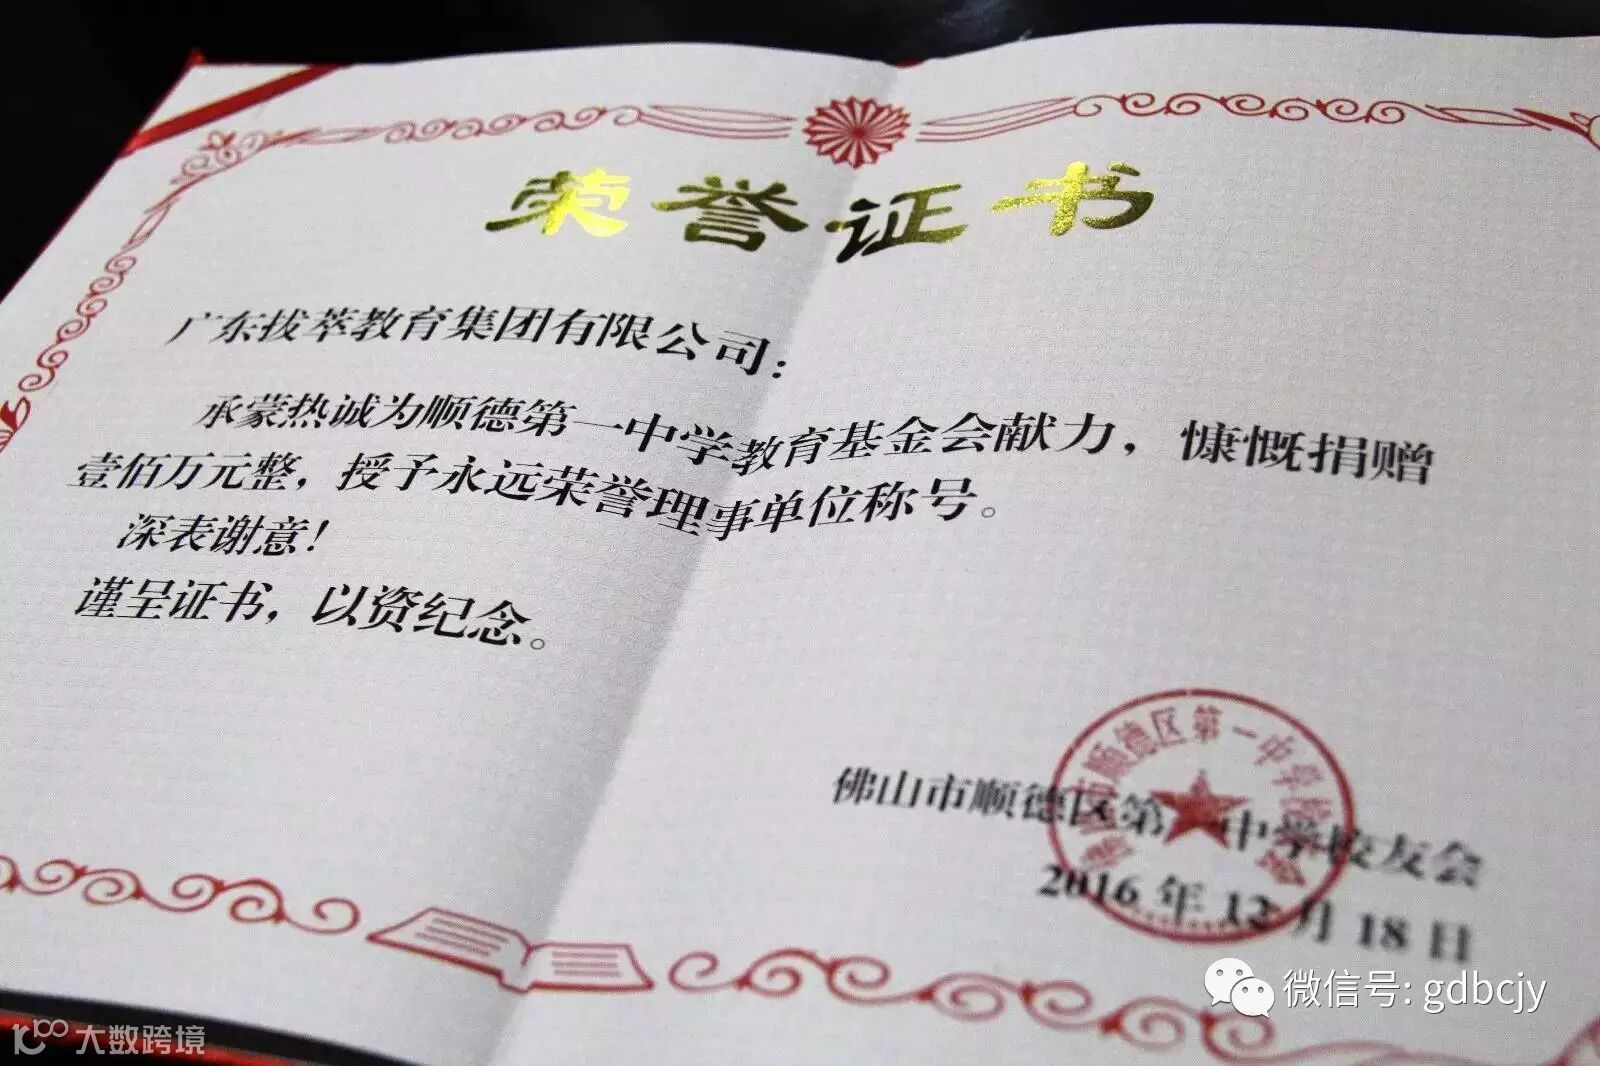 荣誉证书
广东拔萃教育集团有限公司：
承蒙热诚为顺德第一中学教育基金会献力，慷慨捐赠
壹佰万元整，授予永远荣誉理事单位称号。
深表谢意！
谨呈证书，以资纪念。
佛山市顺德区第一中学校友会
2016年12月18日
佛山市顺德区第一中学校友会
微信号: gdbcjy
大数跨境